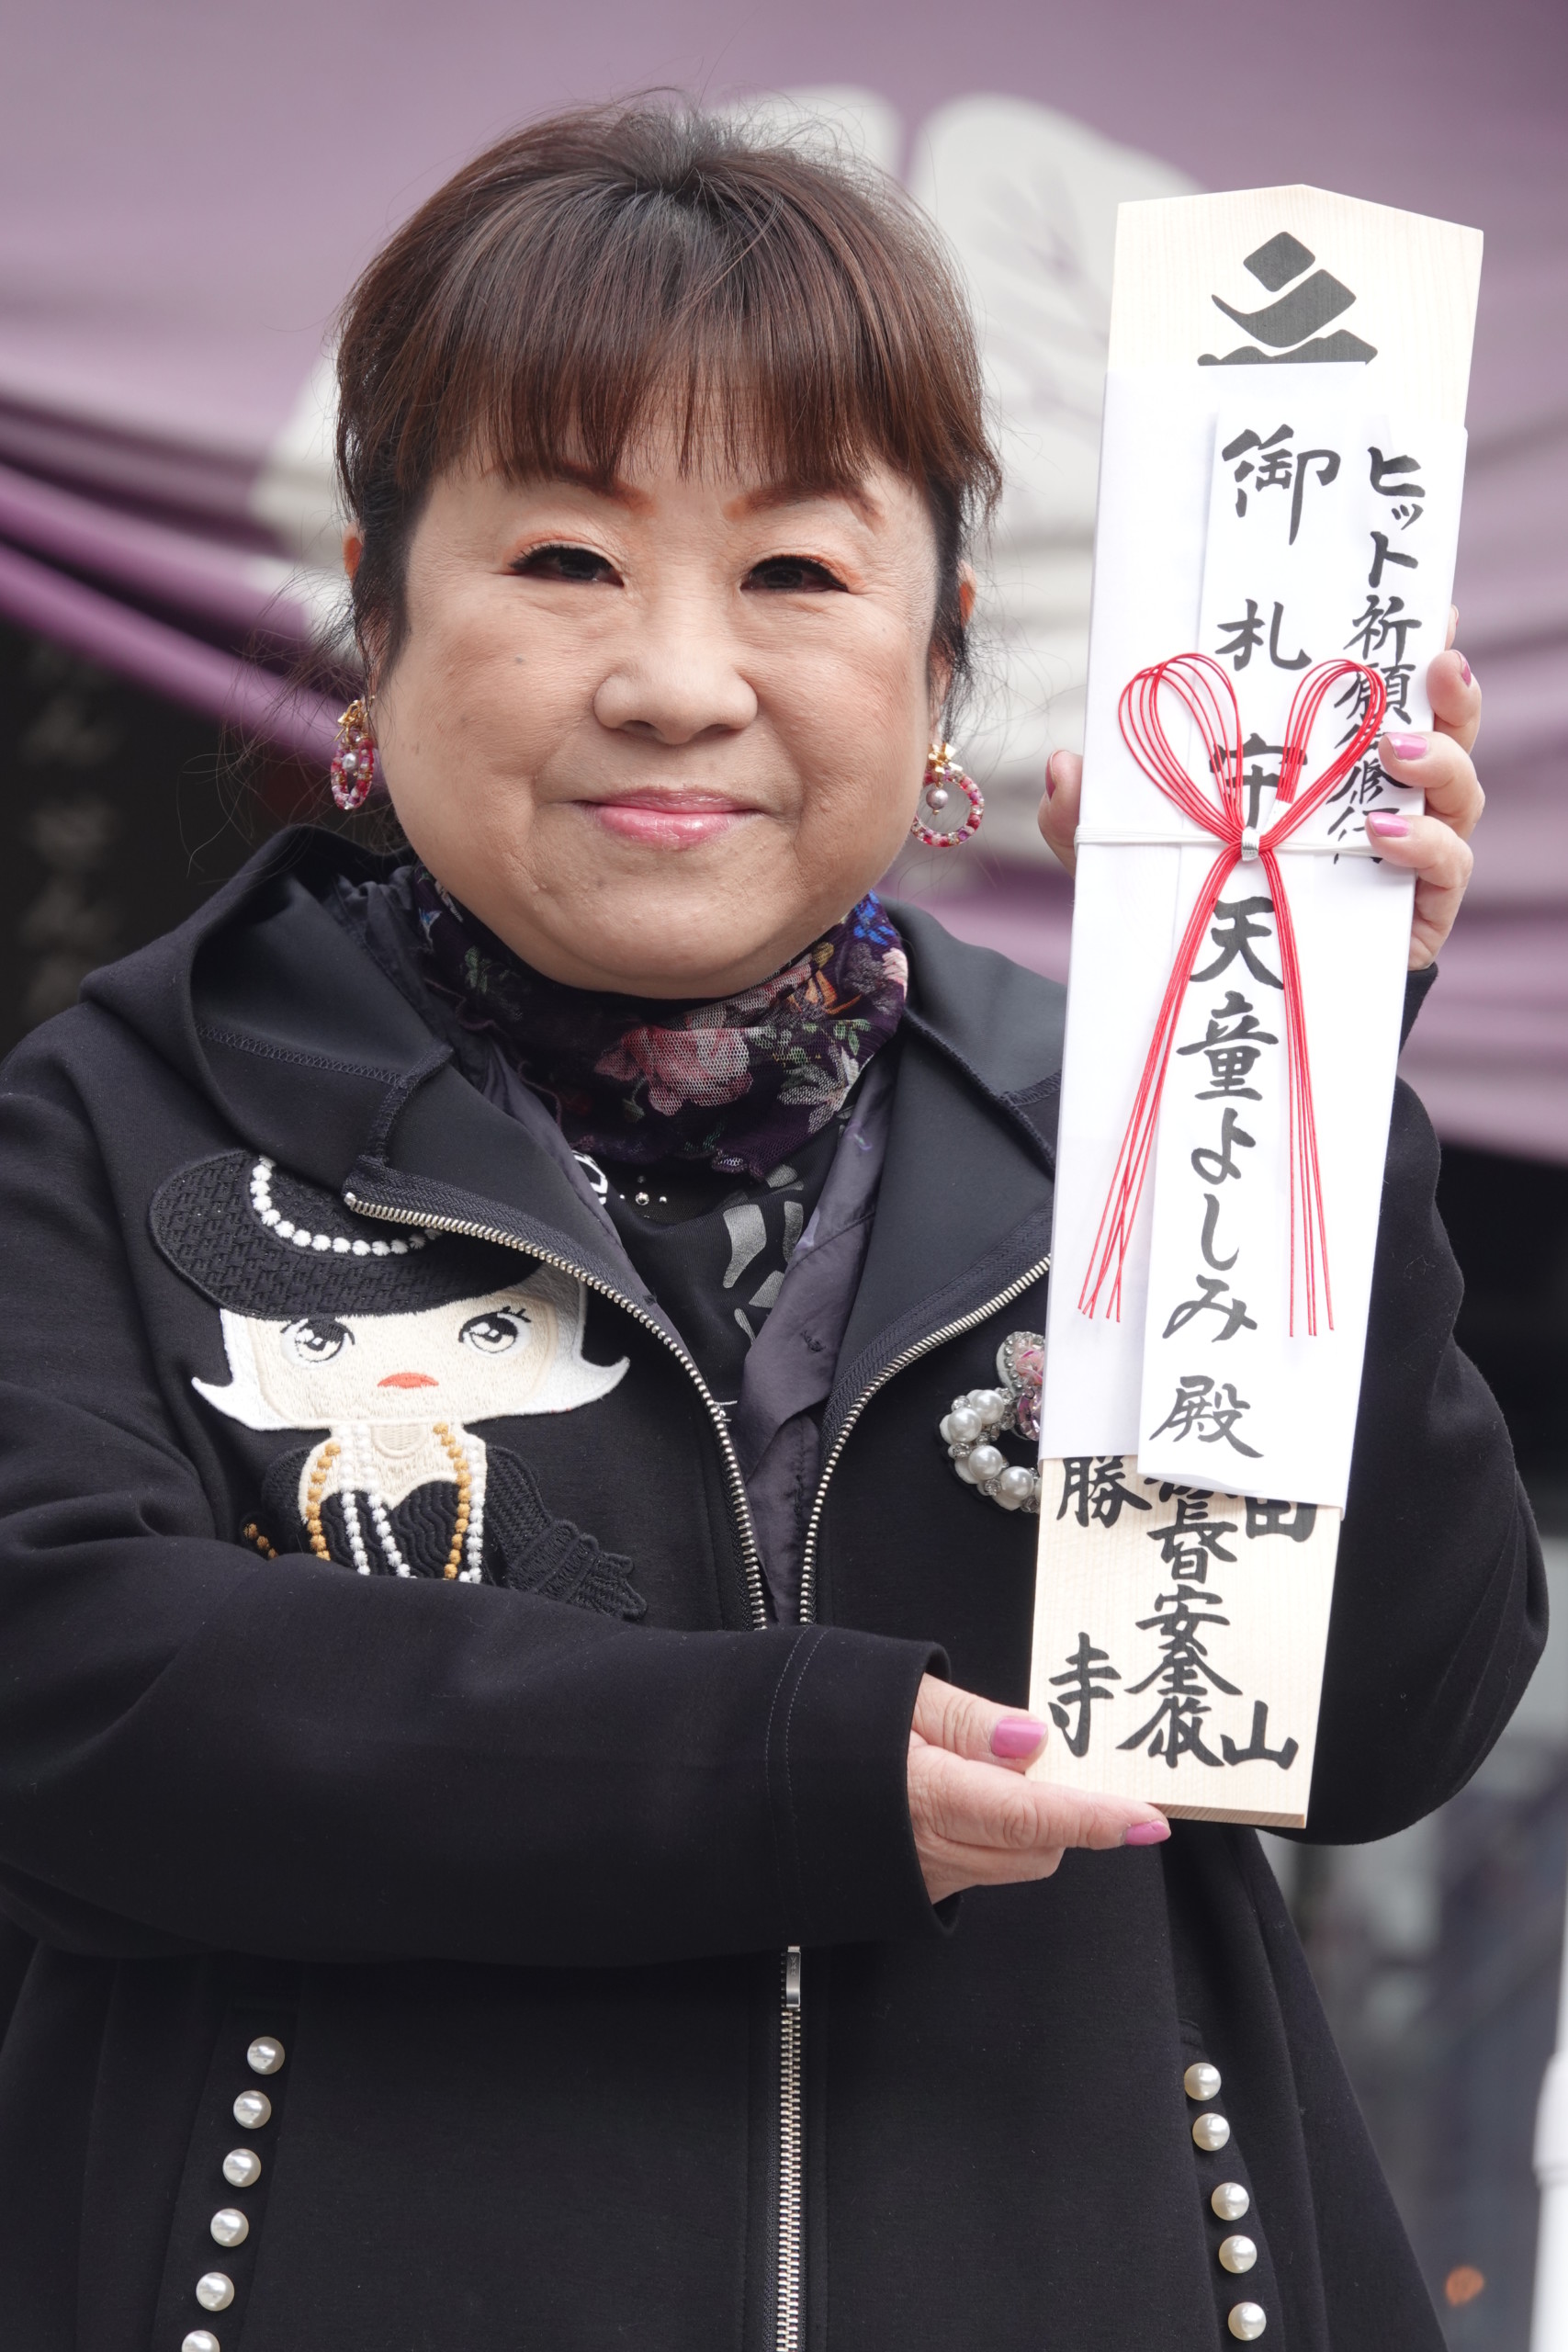 ヒット祈願御修行
御札守
天童よしみ殿
山
安全
勝
寺